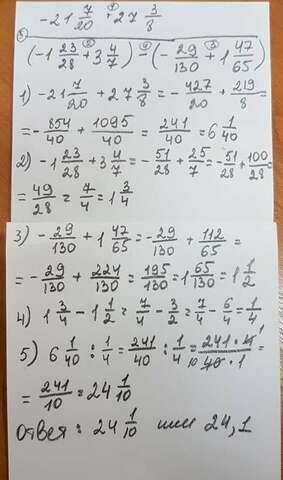 -21 7/20 + 27 3/8
(-1 23/28 + 3 4/7) - (-29/130 + 1 47/65)
1) -21 7/20 + 27 3/8 = -427/20 + 219/8 =
= -854/40 + 1095/40 = 241/40 = 6 1/40
2) -1 23/28 + 3 4/7 = -51/28 + 25/7 = -51/28 + 100/28 =
= 49/28 = 7/4 = 1 3/4
3) -29/130 + 1 47/65 = -29/130 + 112/65 =
= -29/130 + 224/130 = 195/130 = 1 65/130 = 1 1/2
4) 1 3/4 - 1 1/2 = 7/4 - 3/2 = 7/4 - 6/4 = 1/4
5) 6 1/40 : 1/4 = 241/40 : 1/4 = 241·4 1/10 40·1 =
= 241/10 = 24 1/10
Ответ: 24 1/10 или 24,1